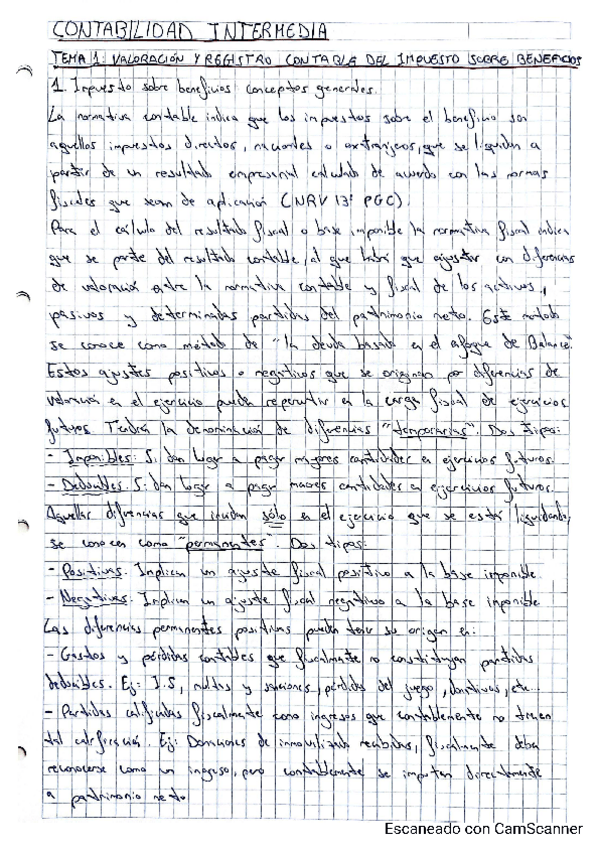 CONTABILIDAD INTERMEDIA
TEMA 1: VALORACIÓN Y REGISTRO CONTABLE DEL IMPUESTO SOBRE BENEFICIOS
1. Impuesto sobre beneficios conceptos generales.
La normativa contable indica que los impuestos sobre el beneficio son
aquellos impuestos directos, nacionales o extranjeros, que se liquidan a
partir de un resultado empresarial calculado de acuerdo con las normas
fiscales que sean de aplicación (NRV 13ª PGC).
Para el cálculo del resultado fiscal o base imponible la normativa fiscal indica
que se parte del resultado contable, al que habrá que ajustar con diferencias
de valoración entre la normativa contable y fiscal de los activos,
pasivos y determinadas partidas del patrimonio neto. Este método
se conoce como método de "la deuda basado en el enfoque de Balance".
Estos ajustes positivos o negativos que se originan por diferencias de
valoración en el ejercicio pueden repercutir en la carga fiscal de ejercicios
futuros. Tendrán la denominación de diferencias "temporarias". Dos tipos:
- Imponibles: Si dan lugar a pagar mayores cantidades en ejercicios futuros.
- Deducibles: Si dan lugar a pagar menores cantidades en ejercicios futuros.
Aquellas diferencias que incidan sólo en el ejercicio que se está liquidando,
se conocen como "permanentes". Dos tipos:
- Positivas. Implican un ajuste fiscal positivo a la base imponible
- Negativas. Implican un ajuste fiscal negativo a la base imponible
Las diferencias permanentes positivas pueden tener su origen en:
- Gastos y pérdidas contables que fiscalmente no constituyen partidas
deducibles. Ej: I.S, multas y sanciones, pérdidas del juego, donativos, etc..
- Partidas calificadas fiscalmente como ingresos que contablemente no tienen
tal calificación. Ej: Donaciones de inmovilizado recibidas, fiscalmente deben
reconocerse como un ingreso, pero contablemente se imputan directamente
a patrimonio neto
Escaneado con CamScanner